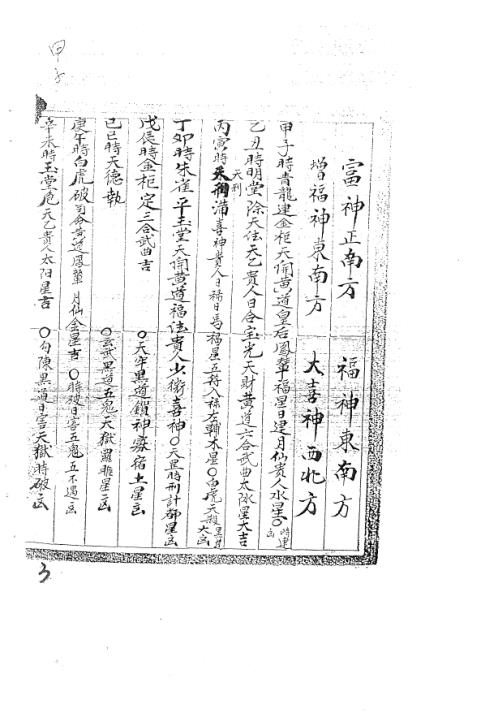 甲子
富神正南方 福神東南方
增福神東南方 大喜神西北方
甲子時青龍建金柜天開黃道皇后鳳輦福星日建月仙貴人水星〇時建凶
乙丑時明堂除天法天乙貴人日合宝光天財黃道六合武曲太陰星大吉
丙寅時天刑滿喜神貴人日祿日馬福星五符入祿左輔木星〇白虎天殺黑道大凶
天刑
丁卯時朱雀平玉堂天開黃道福法貴人少微喜神〇天罡時刑計都星凶
戊辰時金柜定三合武曲吉 〇天牢黑道鎖神寡宿土星凶
己巳時天德執 〇玄武黑道五鬼天獄羅睺星凶
庚午時白虎破司命黃道鳳輦月仙金星吉〇時破日害五鬼五不遇凶
辛未時玉堂危天乙貴人太阳星吉 〇勾陳黑道日害天獄時破凶
3